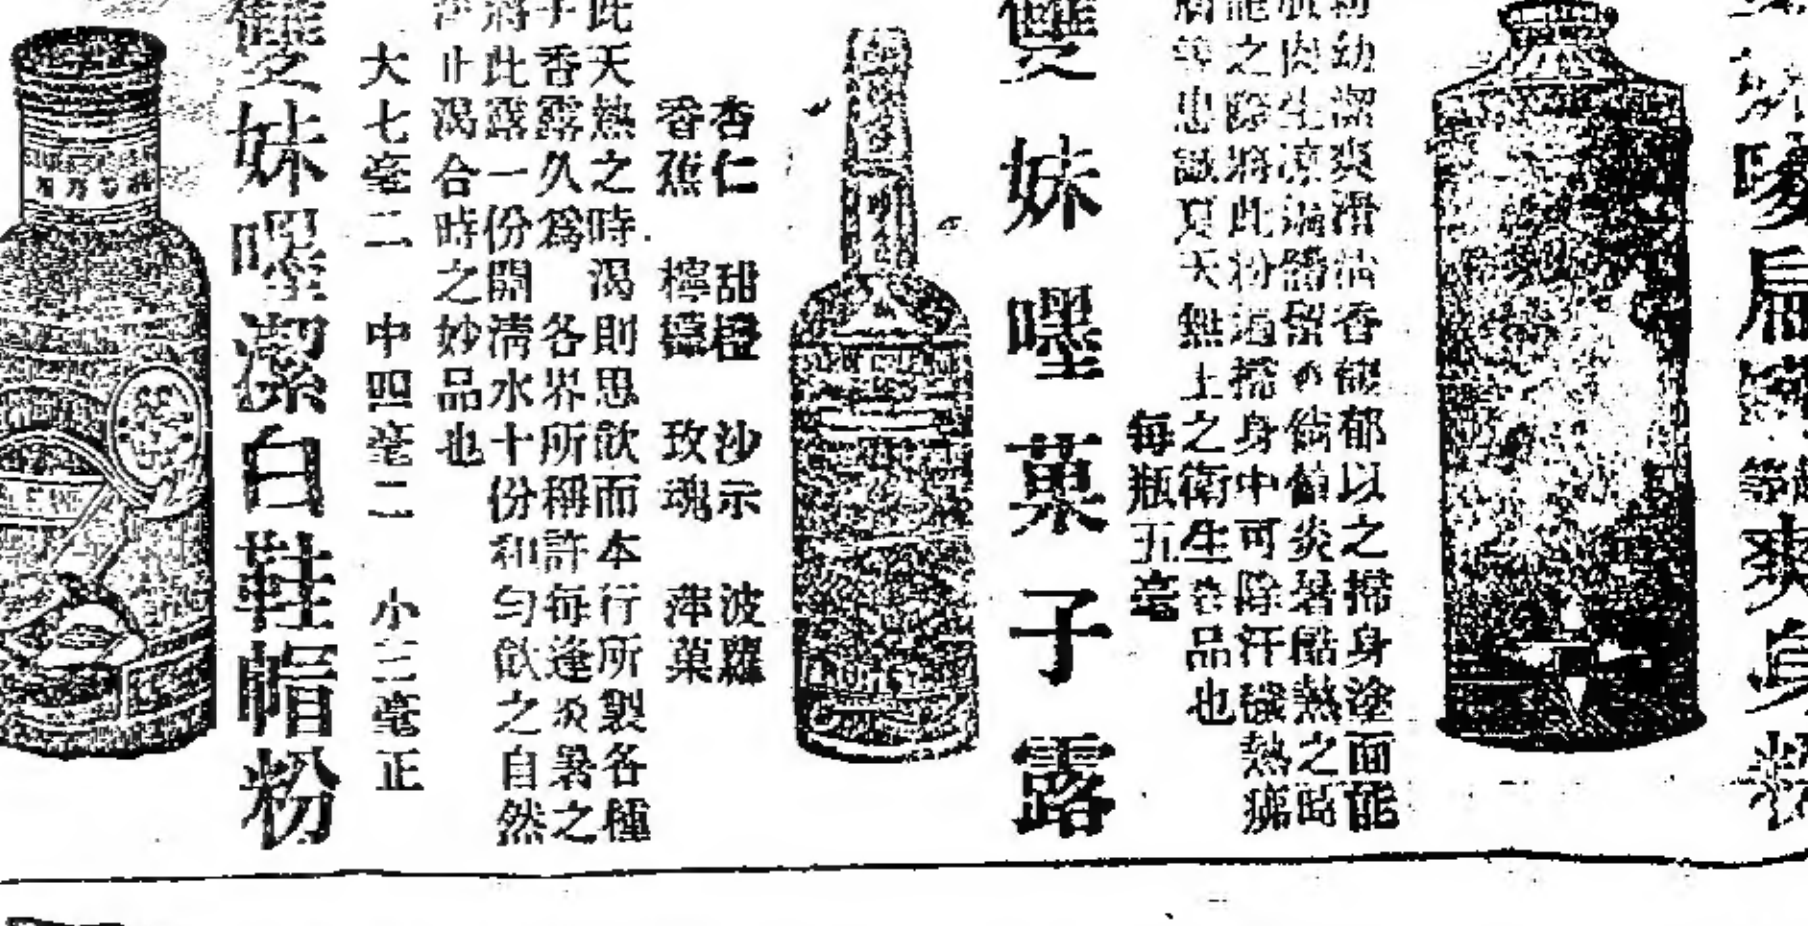 爽身粉
幼潔爽滑 香馥郁以之掃身塗面能
肉生凉滿體留 倘值炎暑酷熱之時
之際將此粉遍搽身中可除汗穢熱痱
等患誠夏天無上之衛生 品也
每瓶五毫
雙妹嘿菓子露
杏仁 甜橙 沙示 波蘿
香蕉 檸檬 玫瑰 萍菓
此天熱之時渴則思飲而本行所製各種
子香露久爲 各界所稱許每逢炎暑之
將此露一份開淸水十份和勻飲之自然
止渴合時之妙品也
大七毫二 中四毫二 小三毫正
雙妹嘿潔白鞋帽粉